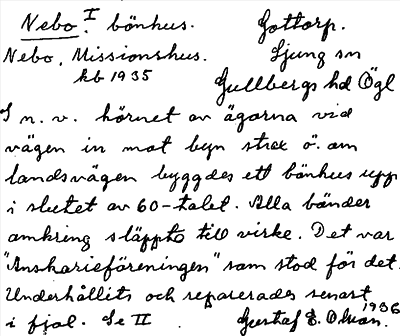 Nebo. I bönhus. Gottorp.
Nebo, Missionshus. Ljung sn
kb 1935 Gullbergs hd Ögl
I n. v. hörnet av ägorna vid
vägen in mot byn strax ö. om
landsvägen byggdes ett bönhus upp
i slutet av 60-talet. Alla bönder
omkring släppte till virke. Det var
"Anskarieföreningen" som stod för det.
Underhållits och reparerades senast
i fjol. Se II Gustaf E. Olson. 1936